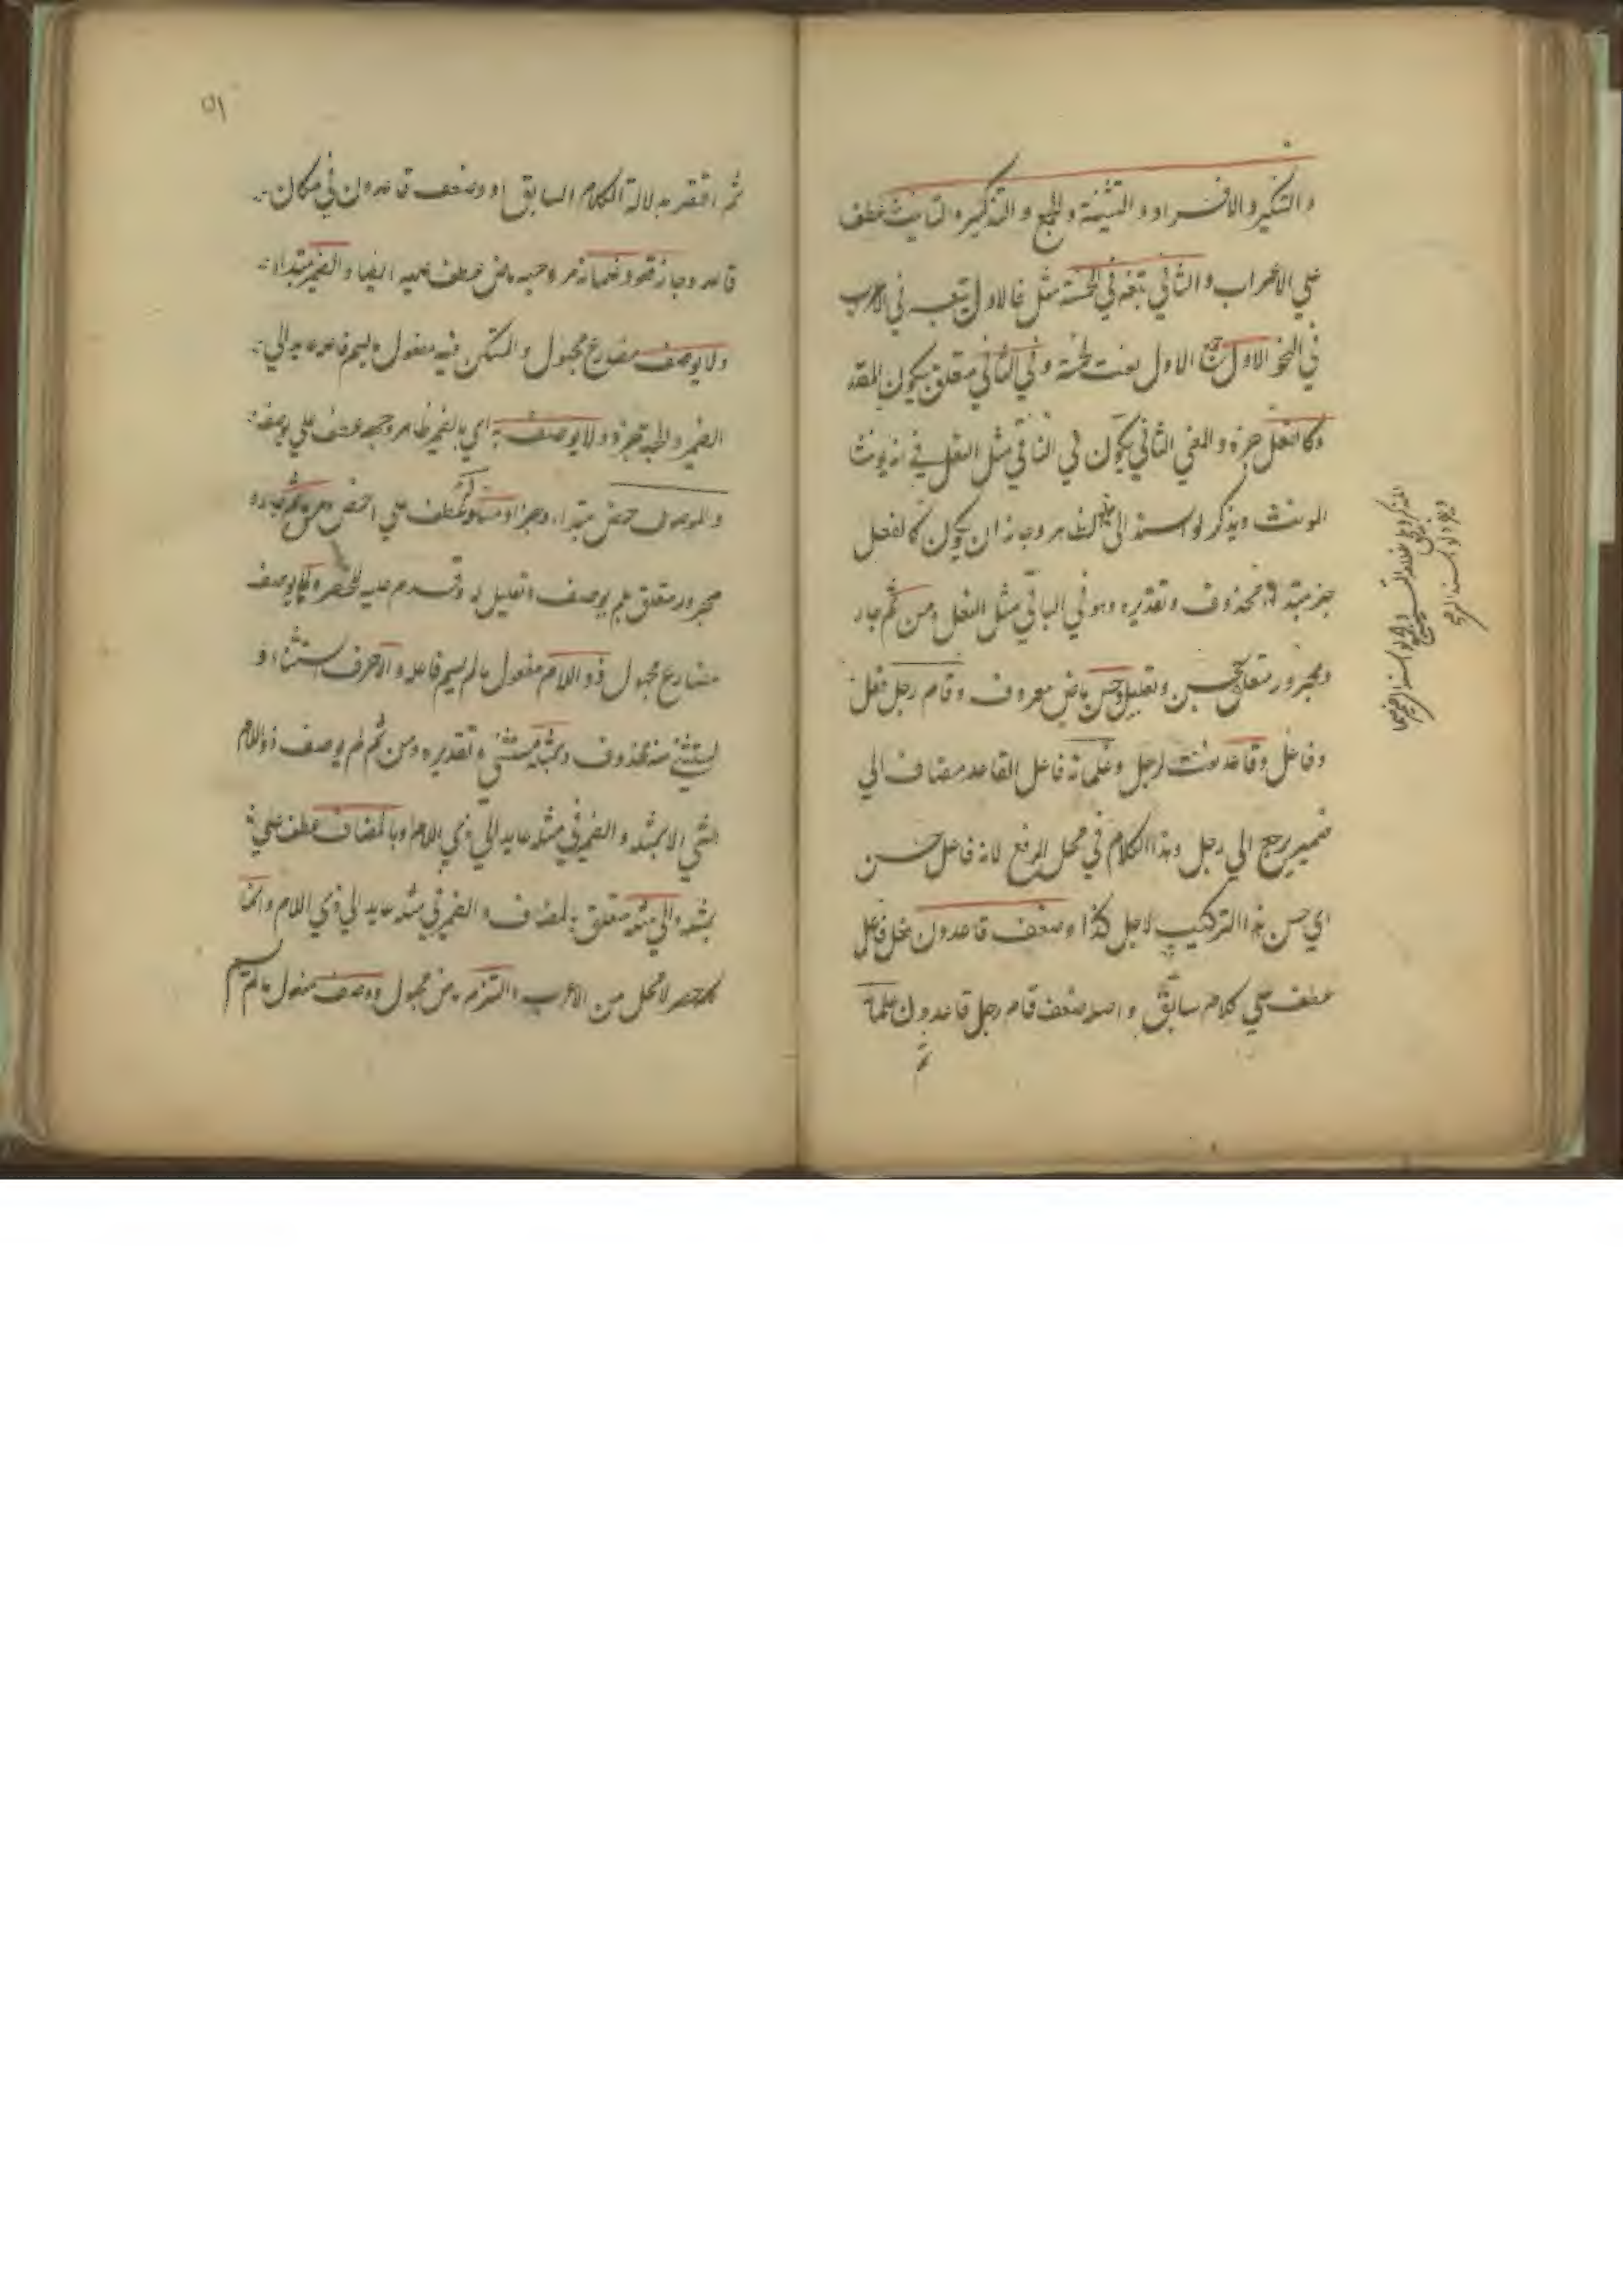 والتنكير والافراد والتثنية والجمع والتذكير والتانيث عطف
علي الاعراب والثاني يتبعه في الخمسة مثل فالاول يتبعه في الاعراب
في النحو الاول الاول نعت لخمسة وفي الثاني متعلق بيكون المقدر
وكالفعل خبره والمعني الثاني يكون في الباقي مثل الفعل في انه يونث
المونث ويذكر لو اسند الي الظاهر وجاز ان يكون كالفعل
خبر مبتداء محذوف وتقديره وهو في الباقي مثل الفعل ومن ثم جار
ومجرور متعلق بحسن وتعليل وحسن ماض معروف وقام رجل فعل
وفاعل وقاعد نعت لرجل وغلمانه فاعل القاعد مضاف الي
ضمير يرجع الي رجل وهذا الكلام في محل الرفع لانه فاعل حسن
اي حسن هذا التركيب لاجل كذا وضعف قاعدون فعل فاعل
عطف علي كلام سابق واصله ضعف قام رجل قاعدون غلمانه
ثم
المذكر
لو اسند الي
٥١
ثم اقتصر بدلالة الكلام السابق او وضعف قاعدون في مكان
قاعد وجاز قعود غلمانه ماض عطف عليه ايضا والضمير مبتداء
ولا يوصف مضارع مجهول والمستكن فيه مفعول ما لم يسم فاعله عايد الي
الضمير والجملة خبره ولا يوصف به اي بالضمير ظاهر وجهه عطف علي يوصف
والموصوف اخص مبتداء وخبر او مساو عطف علي اخص ومن ثم جار و
مجرور متعلق بلم يوصف وتعليل له وقدم عليه للحصر ولم يوصف
مضارع مجهول ذو اللام مفعول ما لم يسم فاعله والا حرف استثناء و
المستثني منه محذوف وبمثله مستثني وتقديره ومن ثم لم يوصف ذو اللام
بشي الا بمثله والضمير في مثله عايد الي ذي اللام او بالمضاف عطف علي
بمثله والي مثله متعلق بالمضاف والضمير في مثله عايد الي ذي اللام وانما
للحصر لا محل من الاعراب والتزم ماض مجهول ووصف مفعول ما لم يسم